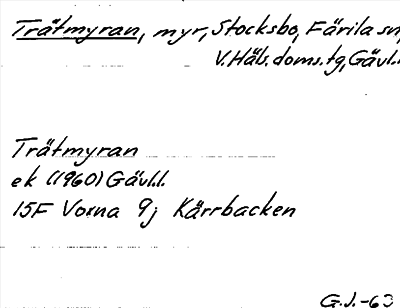 Trätmyran, myr, Stocksbo, Färila sn,
V. Häls. doms. tg, Gävl.l.
Trätmyran
ek (1960) Gävl.l.
15F Voxna 9j Kärrbacken
G.J.-63